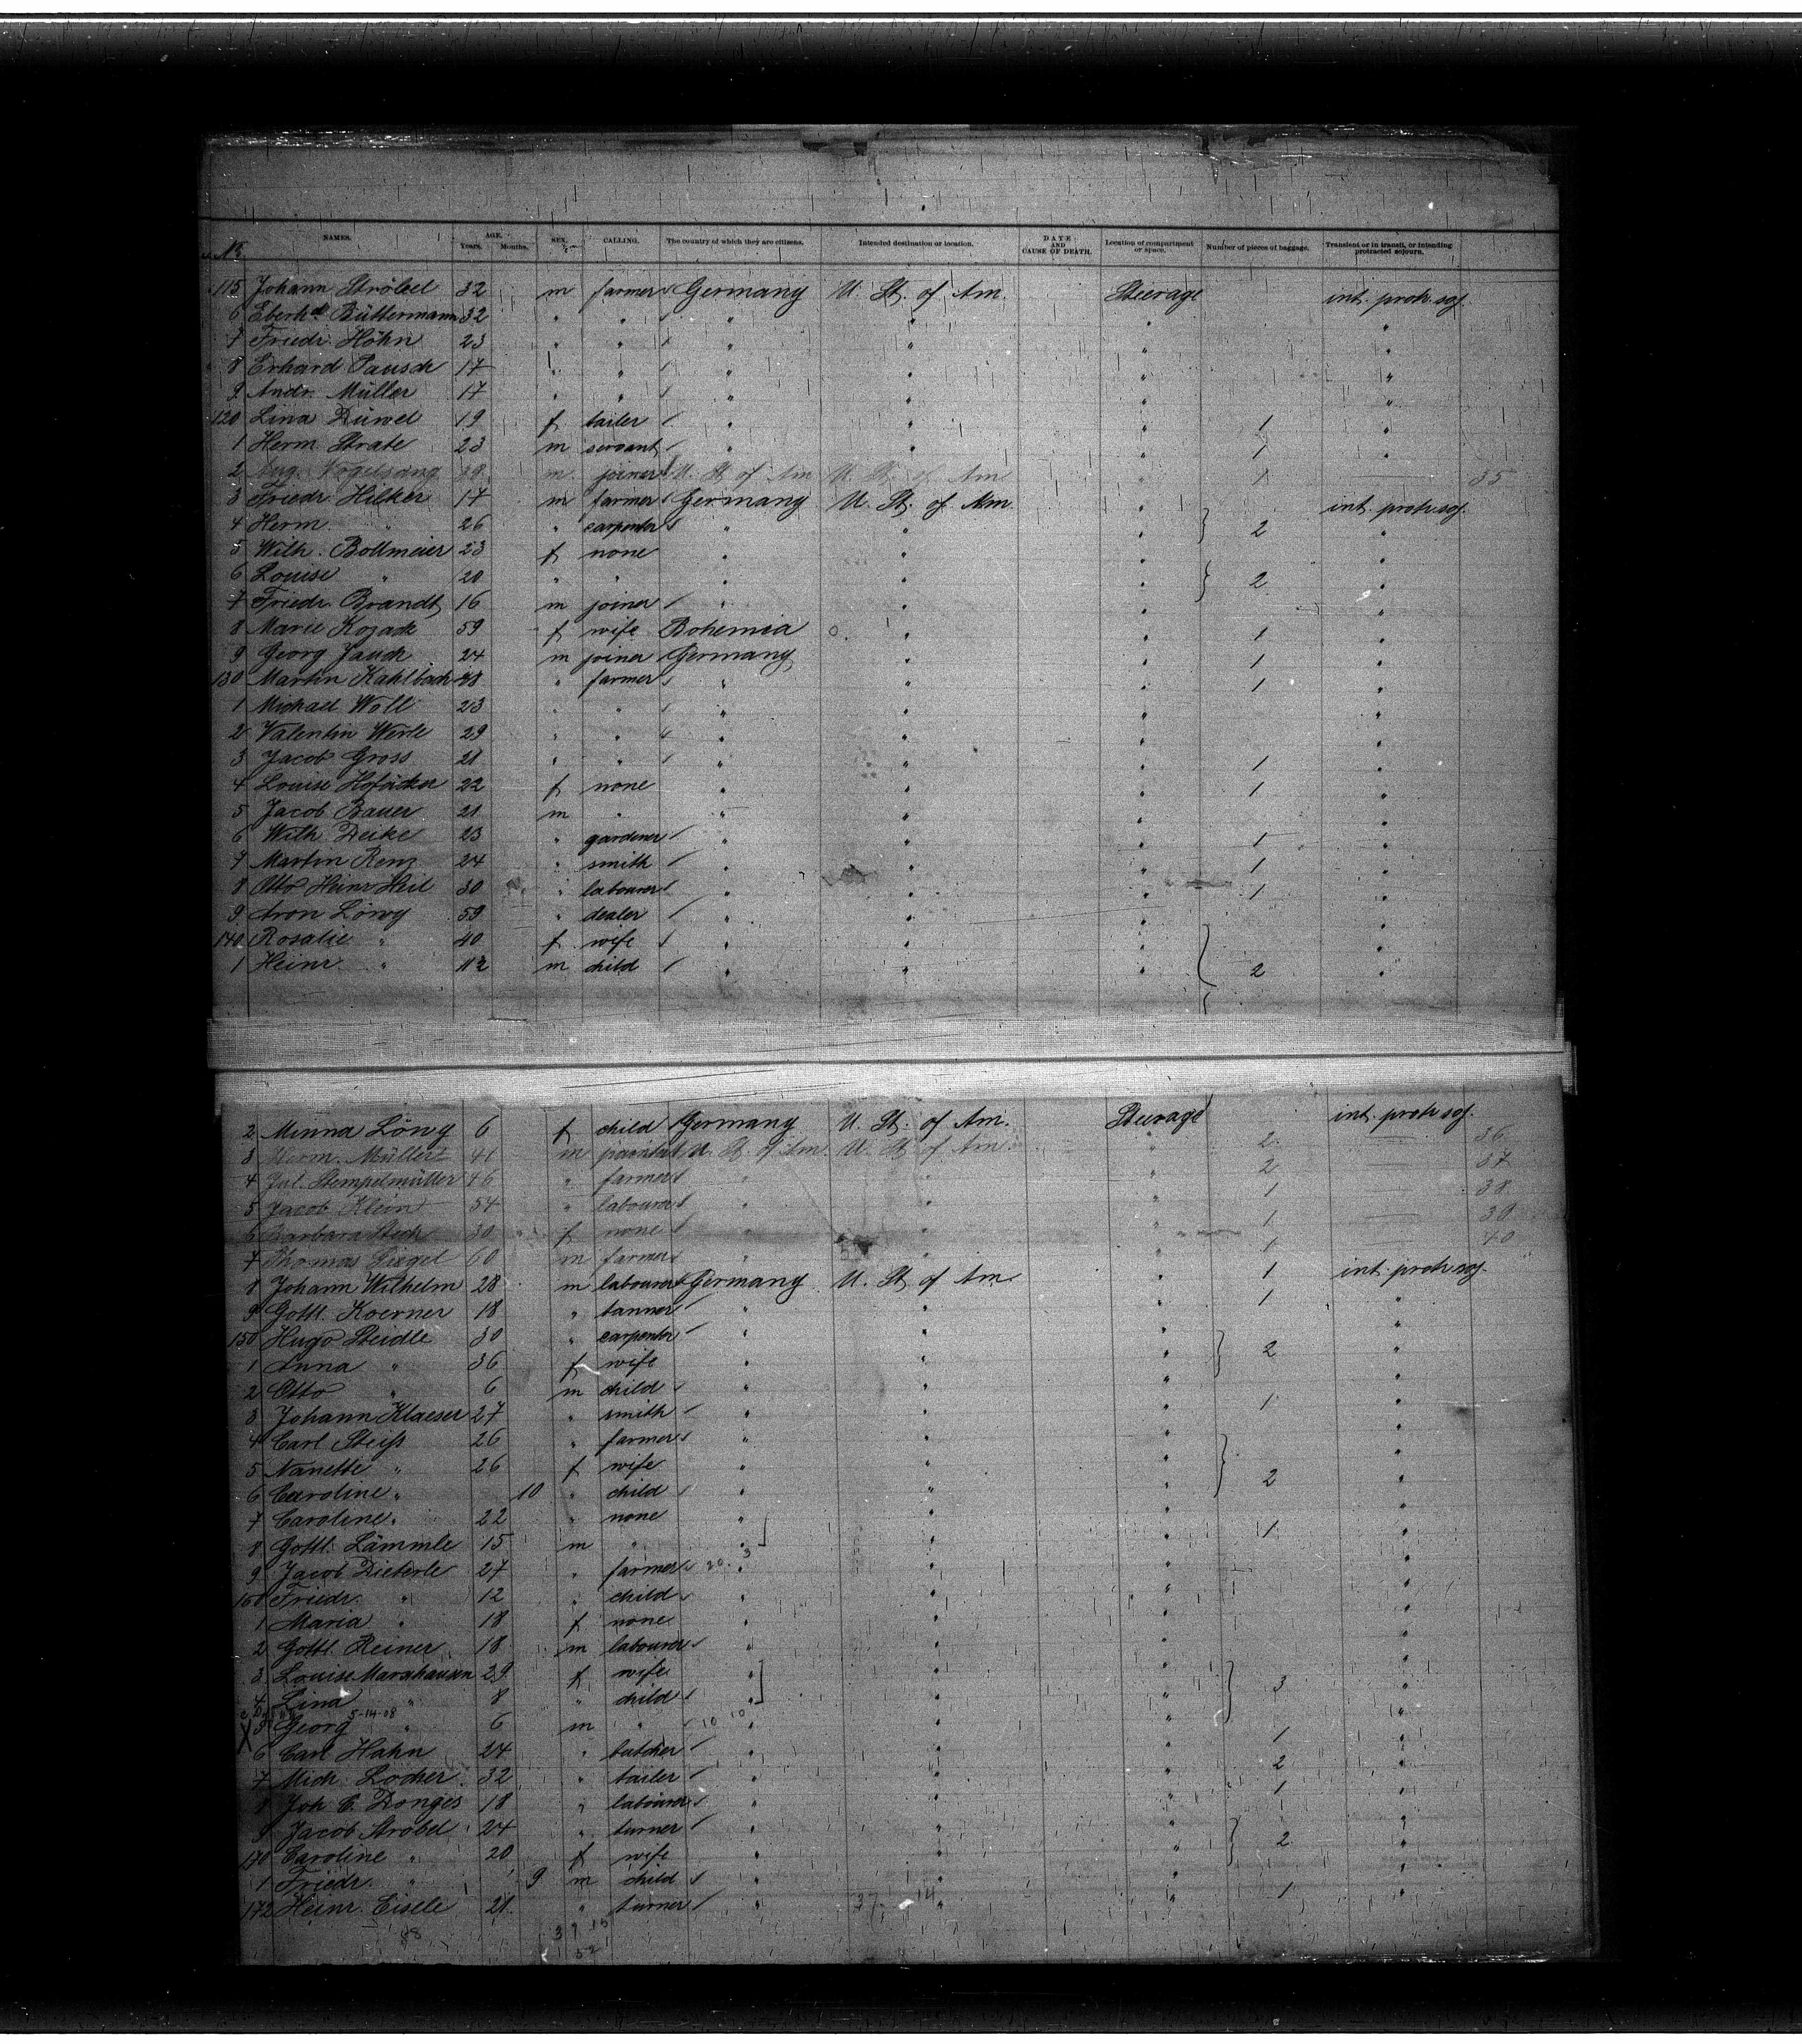 NAMES. AGE. Years. Months. SEX. CALLING. The country of which they are citizens. Intended destination or location. DATE AND CAUSE OF DEATH. Location of compartment or space. Number of pieces of baggage. Transient or in transit, or intending protracted sojourn.
115 Johann Ströbel 32 m farmer Germany U. St. of Am. Steerage int. protr. soj.
6 Eberhd Büttermann 32 " " " " " "
7 Friedr. Höhn 23 " " " " " "
8 Erhard Pausch 17 " " " " " "
9 Andr. Müller 17 " " " " " "
120 Lina Düwel 19 f tailer " " " 1 "
1 Herm. Strate 23 m servant " " " 1 "
2 Aug. Vogelsang m joiner U. St. of Am U. St. of Am " 1 35
3 Friedr. Hilker 17 m farmer Germany U. St. of Am. " int. protr. soj.
4 Herm. " 26 " carpenter " " " 2 "
5 Wilh. Bollmeier 23 f none " " " "
6 Louise " 20 " " " " " 2 "
7 Friedr. Brandt 16 m joiner " " " "
8 Marie Kozack 59 f wife Bohemia " " 1 "
9 Georg Jauch 24 m joiner Germany " " 1 "
130 Martin Kahlbach 48 " farmer " " " 1 "
1 Michael Woll 23 " " " " " "
2 Valentin Werle 29 " " " " " "
3 Jacob Gross 21 " " " " " 1 "
4 Louise Hofäcker 22 f none " " " 1 "
5 Jacob Bauer 21 m " " " " "
6 Wilh. Deike 23 " gardener " " " 1 "
7 Martin Renz 24 " smith " " " 1 "
8 Otto Heinr. Heil 30 " labourer " " " 1 "
9 Aron Löwy 59 " dealer " " " "
140 Rosalie " 40 f wife " " " "
1 Heinr. " m child " " " 2 "
2 Minna Löwy 6 f child Germany U. St. of Am. Steerage int. protr. soj.
3 Herm. Müllert 41 m U. St. of Am U. St. of Am " 2 36
4 Jul. Stempelmüller 46 " farmer " " " 2 37
5 Jacob Klein 54 " labourer " " " 1 38
6 Barbara 30 f none " " " 1 39
7 Thomas Siegel 60 m farmer " " " 1 40
8 Johann Wilhelm 28 m labourer Germany U. St. of Am. " 1 int. protr. soj.
9 Gottl. Koerner 18 " tanner " " " 1 "
150 Hugo Steidle 30 " carpenter " " " "
1 Anna " 36 f wife " " " 2 "
2 Otto " 6 m child " " " "
3 Johann Klaeser 27 " smith " " " 1 "
4 Carl Steiss 26 " farmer " " " "
5 Nanette " 26 f wife " " " 2 "
6 Caroline " 10 " child " " " "
7 Caroline " 22 " none " " " 1 "
8 Gottl. Lämmle 15 m " " " " "
9 Jacob Dieterle 27 " farmer " " " "
160 Friedr. " 12 " child " " " "
1 Maria " 18 f none " " " "
2 Gottl. Reiner 18 m labourer " " " "
3 Louise Marahausen 29 f wife " " " 3 "
4 Lina " 8 " child " " " "
5-14-08
X 5 Georg " 6 m " " " " "
6 Carl Hahn 24 " butcher " " " 1 "
7 Mich. Locher 32 " tailer " " " 2 "
8 Joh. C. Donges 18 " labourer " " " 1 "
9 Jacob Ströbel 24 " turner " " " "
170 Caroline " 20 f wife " " " 2 "
1 Friedr. " 9 m child " " " "
172 Heinr. Eisele 21 " turner " 37 14 " " 1 "